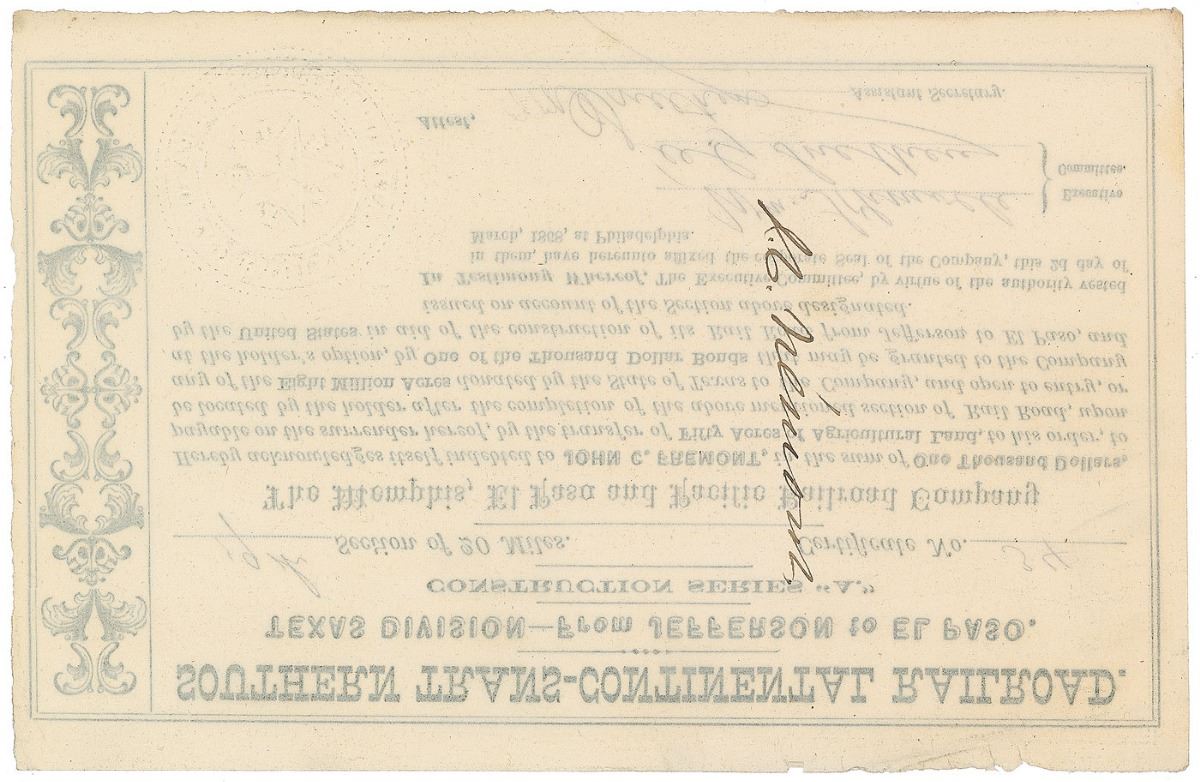 SOUTHERN TRANS-CONTINENTAL RAILROAD.
TEXAS DIVISION—From JEFFERSON to EL PASO.
CONSTRUCTION SERIES "A."
9th Section of 20 Miles. Certificate No. 34
The Memphis, El Paso and Pacific Railroad Company
Hereby acknowledges itself indebted to JOHN C. FREMONT, in the sum of One Thousand Dollars,
payable on the surrender hereof, by the transfer of Fifty Acres of Agricultural Land, to his order, to
be located by the holder after the completion of the above mentioned section of Rail Road, upon
any of the Eight Million Acres donated by the State of Texas to the Company, and open to entry, or
at the holder's option, by One of the Thousand Dollar Bonds that may be granted to the Company
by the United States in aid of the construction of its Rail Road from Jefferson to El Paso, and
issued on account of the Section above designated.
In Testimony Whereof, The Executive Committee, by virtue of the authority vested
in them, have hereunto affixed the corporate Seal of the Company, this 2d day of
March, 1868, at Philadelphia.
Executive
Committee.
Attest,
Assistant Secretary.
J. C. Frémont